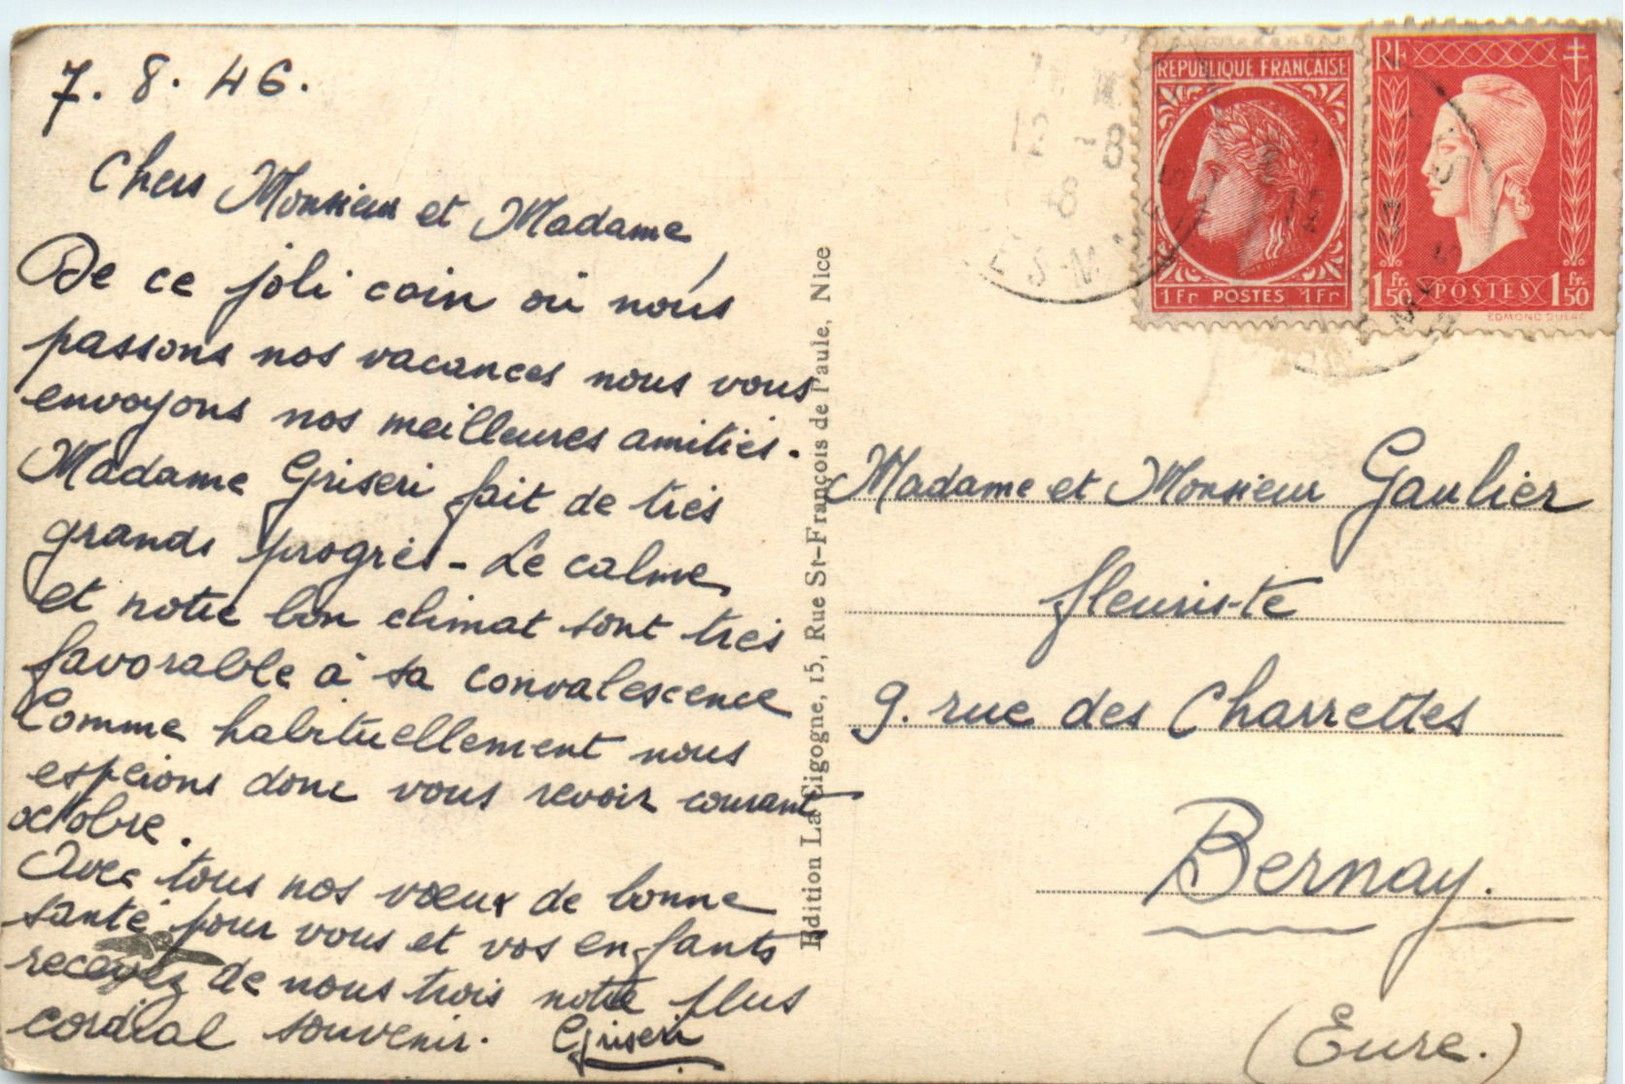 7. 8. 46.
Chers Monsieur et Madame,
De ce joli coin où nous
passons nos vacances nous vous
envoyons nos meilleures amitiés.
Madame Griseri fait de très
grands progrès - Le calme
et notre bon climat sont très
favorable à sa convalescence
Comme habituellement nous
espérons donc vous revoir courant
octobre.
Avec tous nos vœux de bonne
santé pour vous et vos enfants
recevez de nous trois notre plus
cordial souvenir. Griseri
Edition La Cigogne, 15, Rue St-François de Paule, Nice
REPUBLIQUE FRANÇAISE
1 Fr POSTES 1 Fr
RF
1 Fr. 50 POSTES 1 Fr. 50
EDMOND DULAC
12 -8
Madame et Monsieur Gaulier
fleuriste
9. rue des Charrettes
Bernay.
(Eure.)